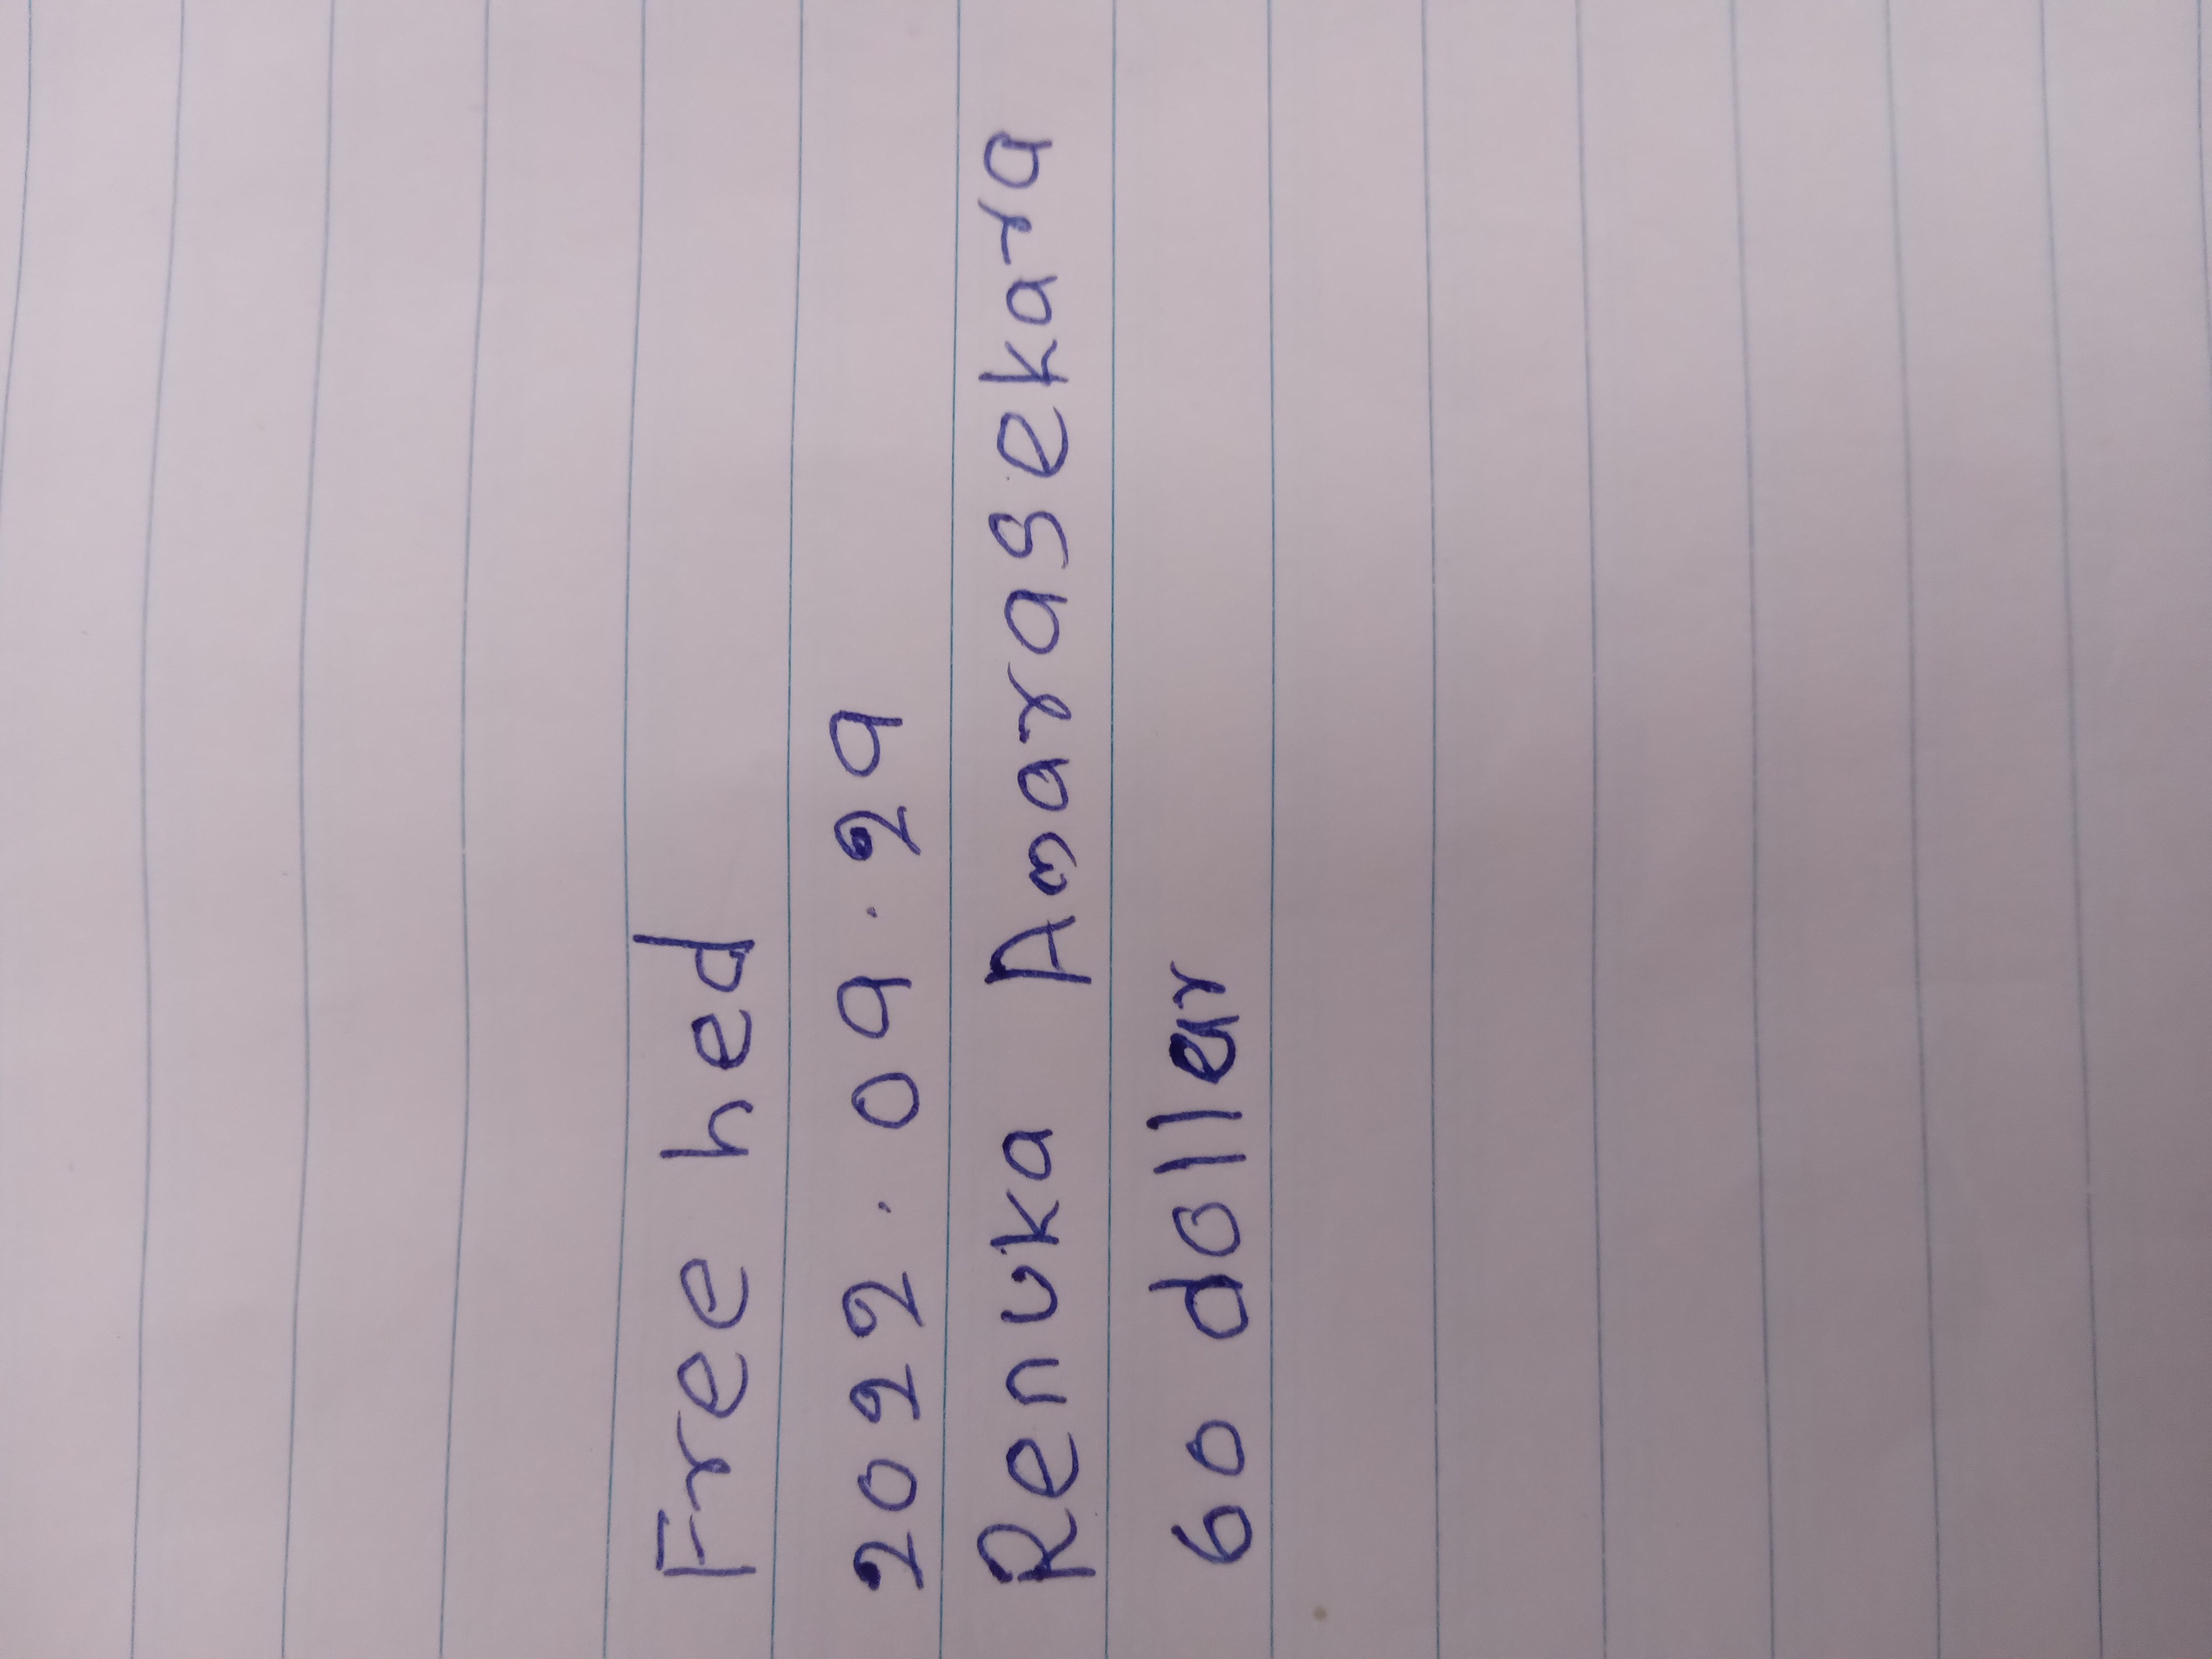 Free hed
2022.09.29
Renuka Amarasekara
60 dollar